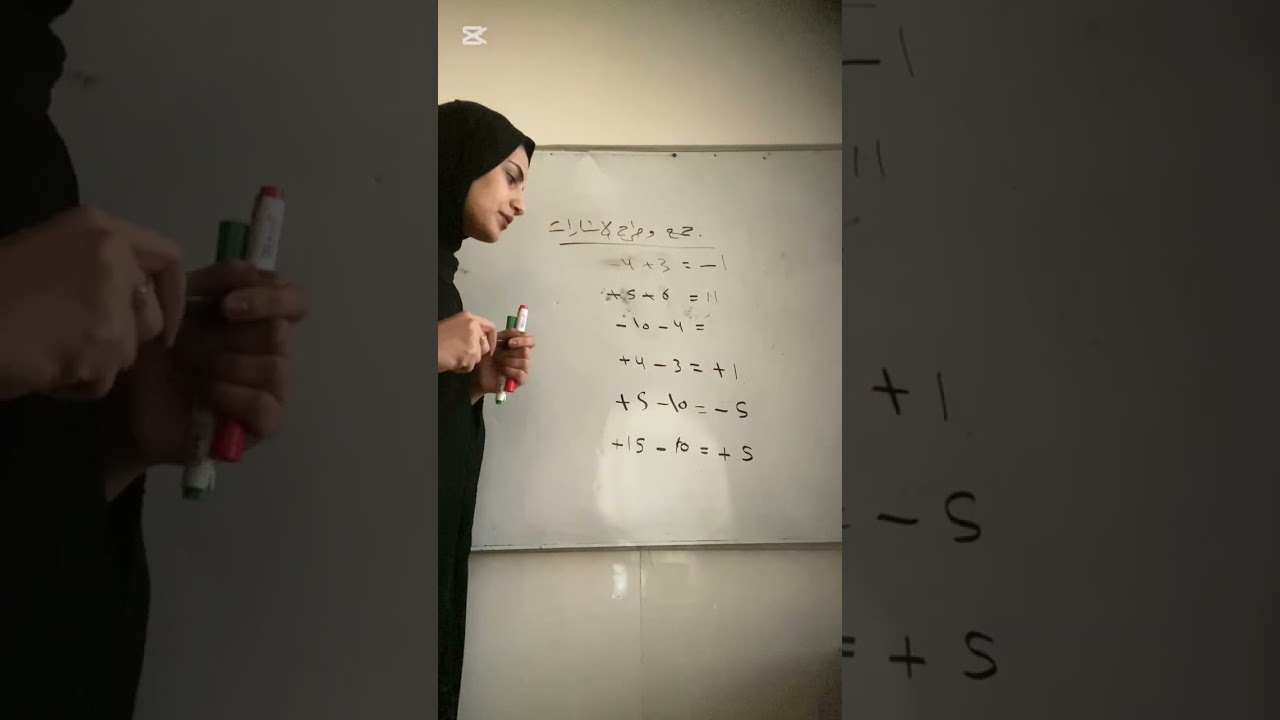 جمع وطرح الاشارات
-4+3=-1
+5+6=11
-10-4=
+4-3=+1
+5-10=-5
+15-10=+5